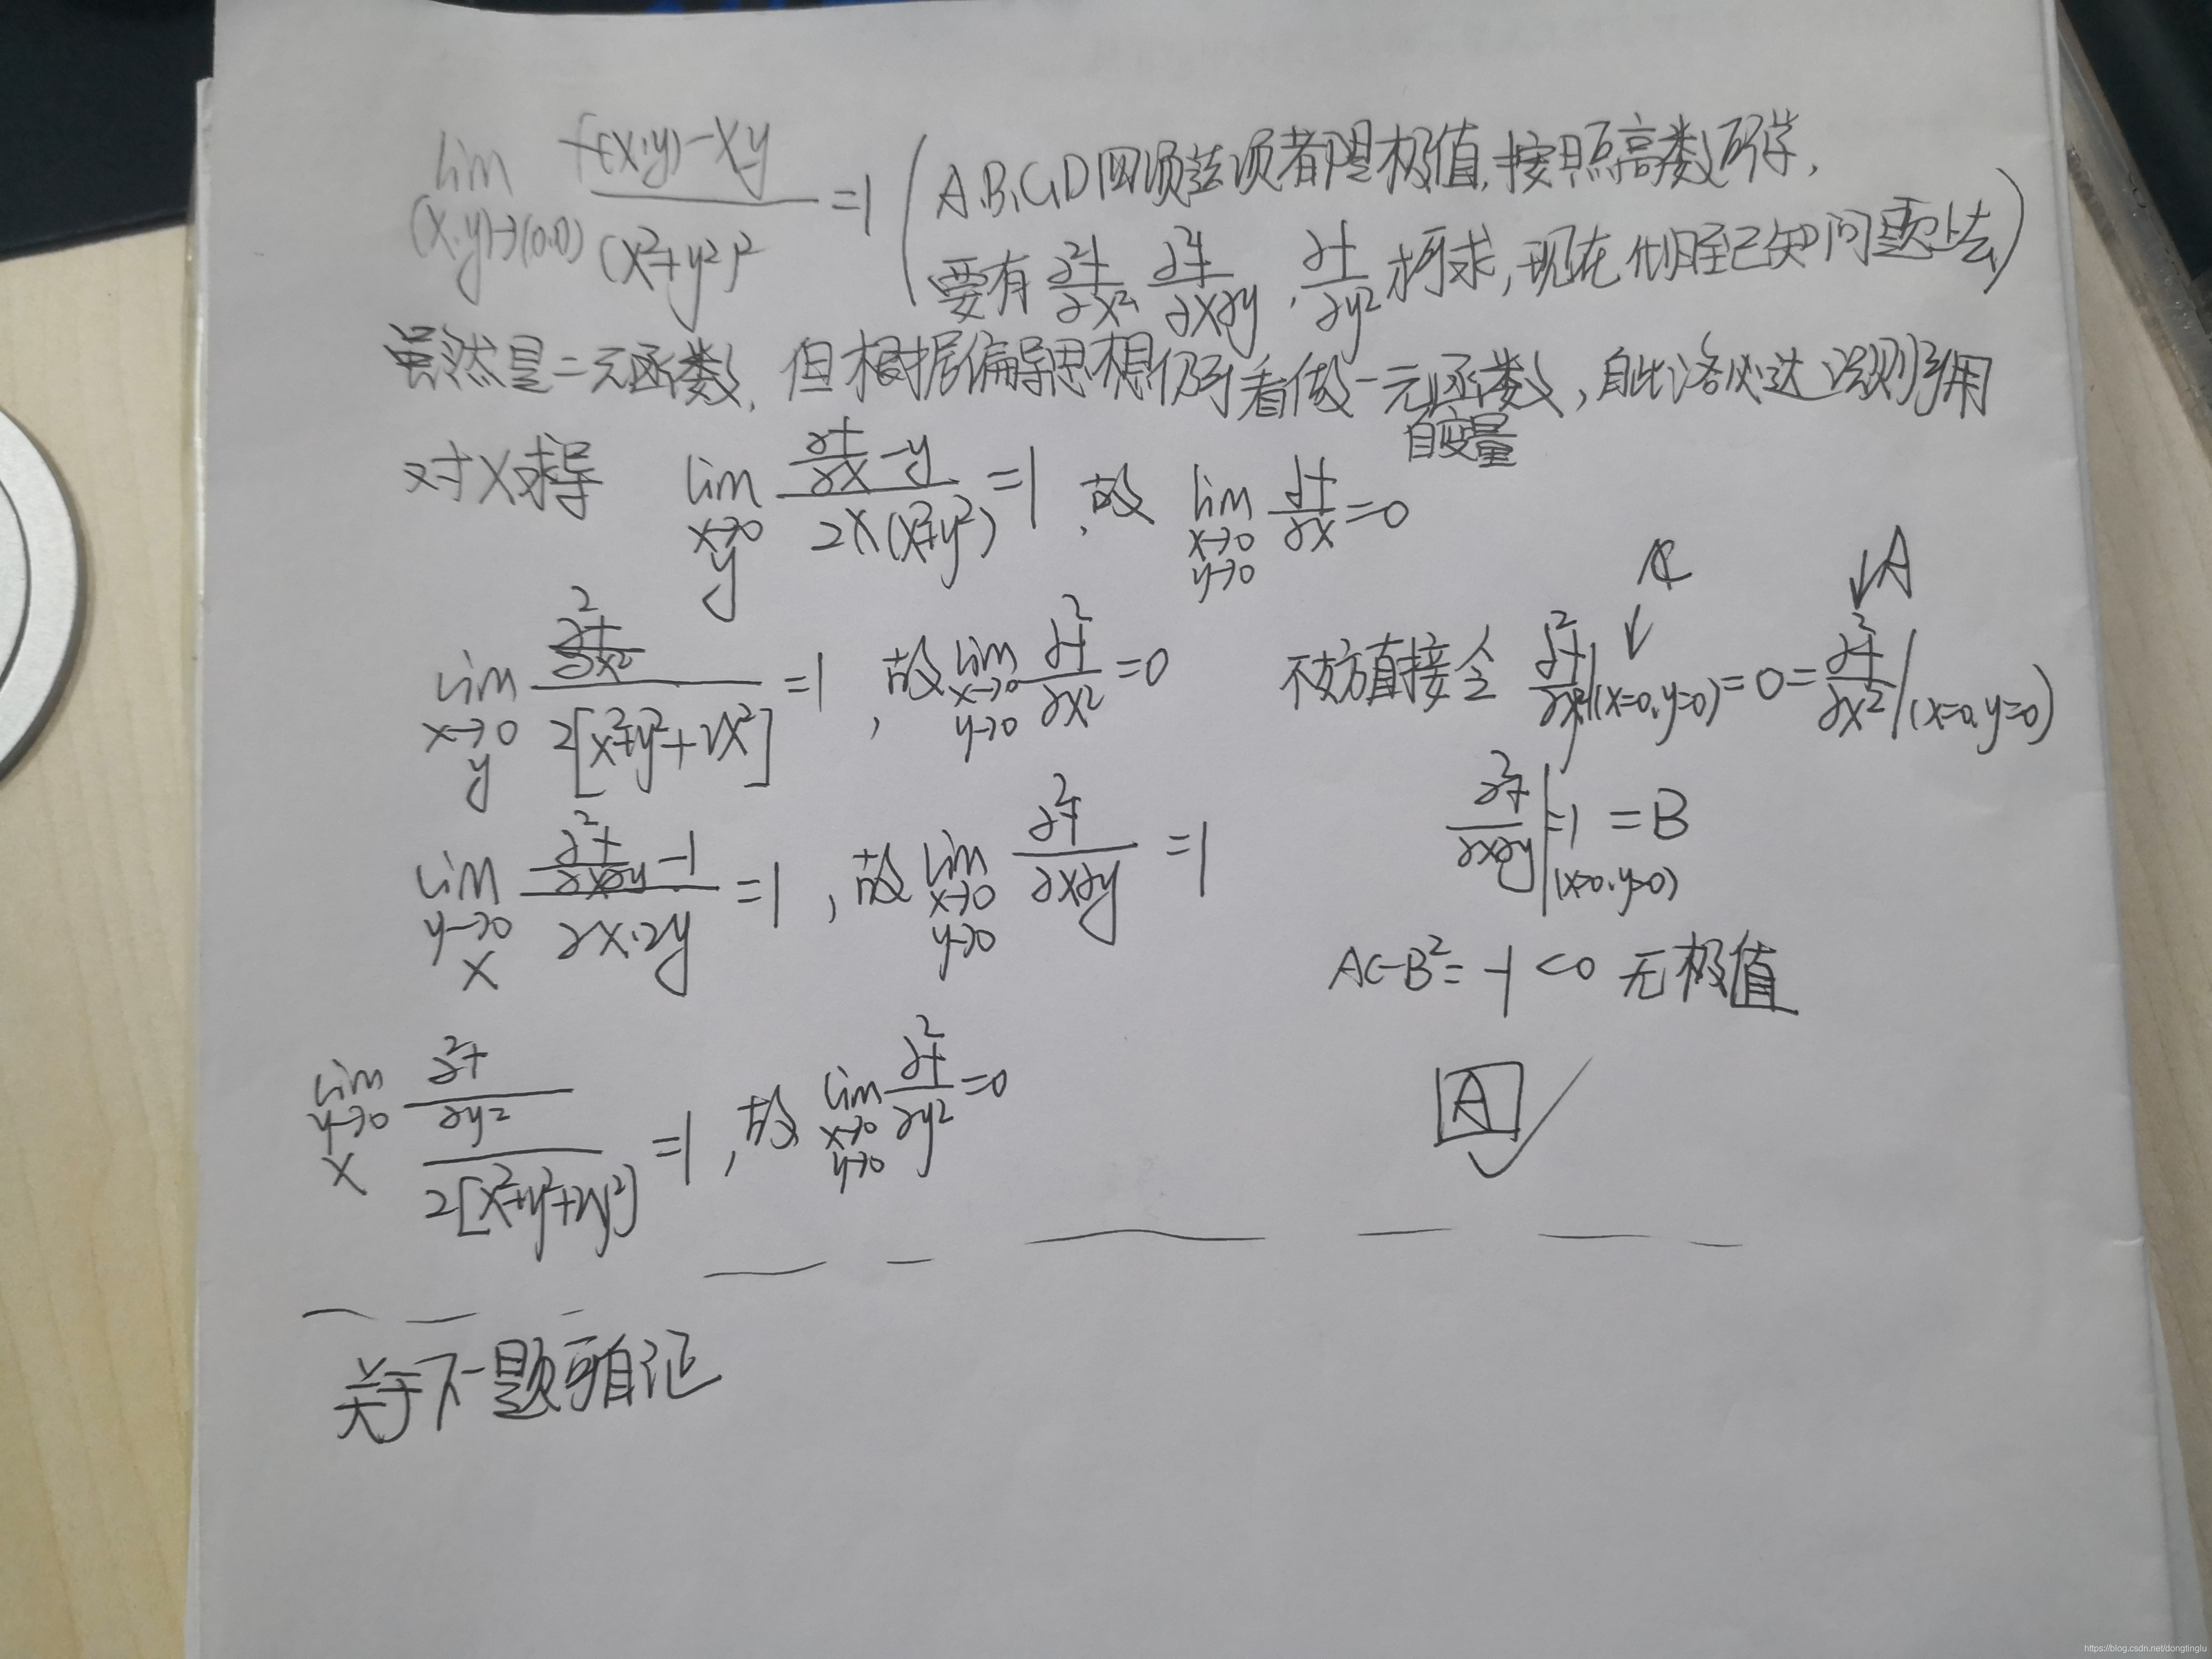 lim (x,y)→(0,0) f(x,y)-xy / (x²+y²)² =1 (A.B.C.D四项选项都是极值,按照高数所学,
要有 ∂²f/∂x² ∂²f/∂x∂y , ∂f/∂y² 才可求,现在 已知问题上去)
虽然是二元函数,但根据偏导思想仍可看做一元函数,自此洛必达法则引用
自变量
对X求导 lim x→0 y ∂f/∂x -y / 2x(x²+y²) =1 ,故 lim x→0 y→0 ∂f/∂x =0
lim x→0 y ∂²f/∂x² / 2[x²+y²+2x²] =1 , 故 lim x→0 y→0 ∂²f/∂x² =0
C A
不妨直接令 ∂²f/∂y² |(x=0,y=0) = 0 = ∂²f/∂x² |(x=0,y=0)
lim y→0 x ∂²f/∂x∂y -1 / 2x·2y =1 , 故 lim x→0 y→0 ∂²f/∂x∂y =1
∂²f/∂x∂y |(x=0,y=0) =1 =B
AC-B²= -1 <0 无极值
lim y→0 x ∂²f/∂y² / 2[x²+y²+2y²] =1 , 故 lim x→0 y→0 ∂²f/∂y² =0
A
关于下一题可自证
https://blog.csdn.net/dongtinglu